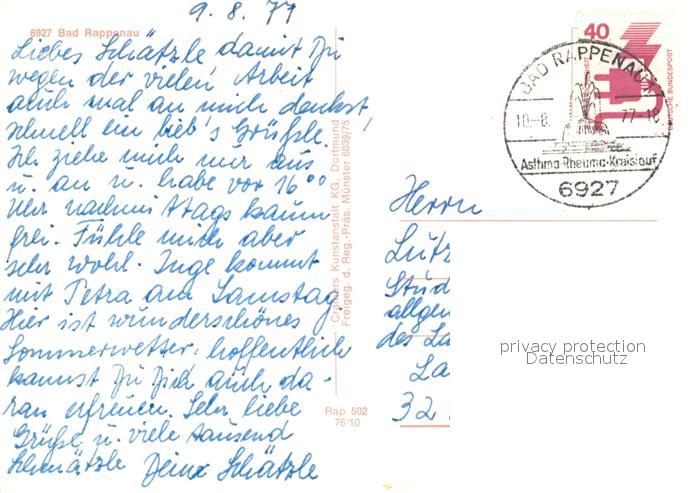 9. 8. 77
6927 Bad Rappenau
Liebes Schätzle damit Du
wegen der vielen Arbeit
auch mal an mich denkst,
schnell ein lieb's Grüßle.
Ich ziehe mich nur aus
u. an u. habe vor 16⁰⁰
Uhr nachmittags kaum
frei. Fühle mich aber
sehr wohl. Inge kommt
mit Petra am Samstag.
Hier ist wunderschönes
Sommerwetter, hoffentlich
kannst Du Dich auch da-
ran erfreuen. Sehr liebe
Grüße u. viele tausend
Schmätzle Deine Schätzle
Cramers Kunstanstalt KG, Dortmund
Freigeg. d. Reg.-Präs. Münster 6039/75
Rap 502
76/10
40
DEUTSCHE BUNDESPOST
BAD RAPPENAU 1
10.-8. 77-18
Asthma-Rheuma-Kreislauf
6927
Herrn
Lutz
Stud
allgen
des La
La
32
privacy protection
Datenschutz